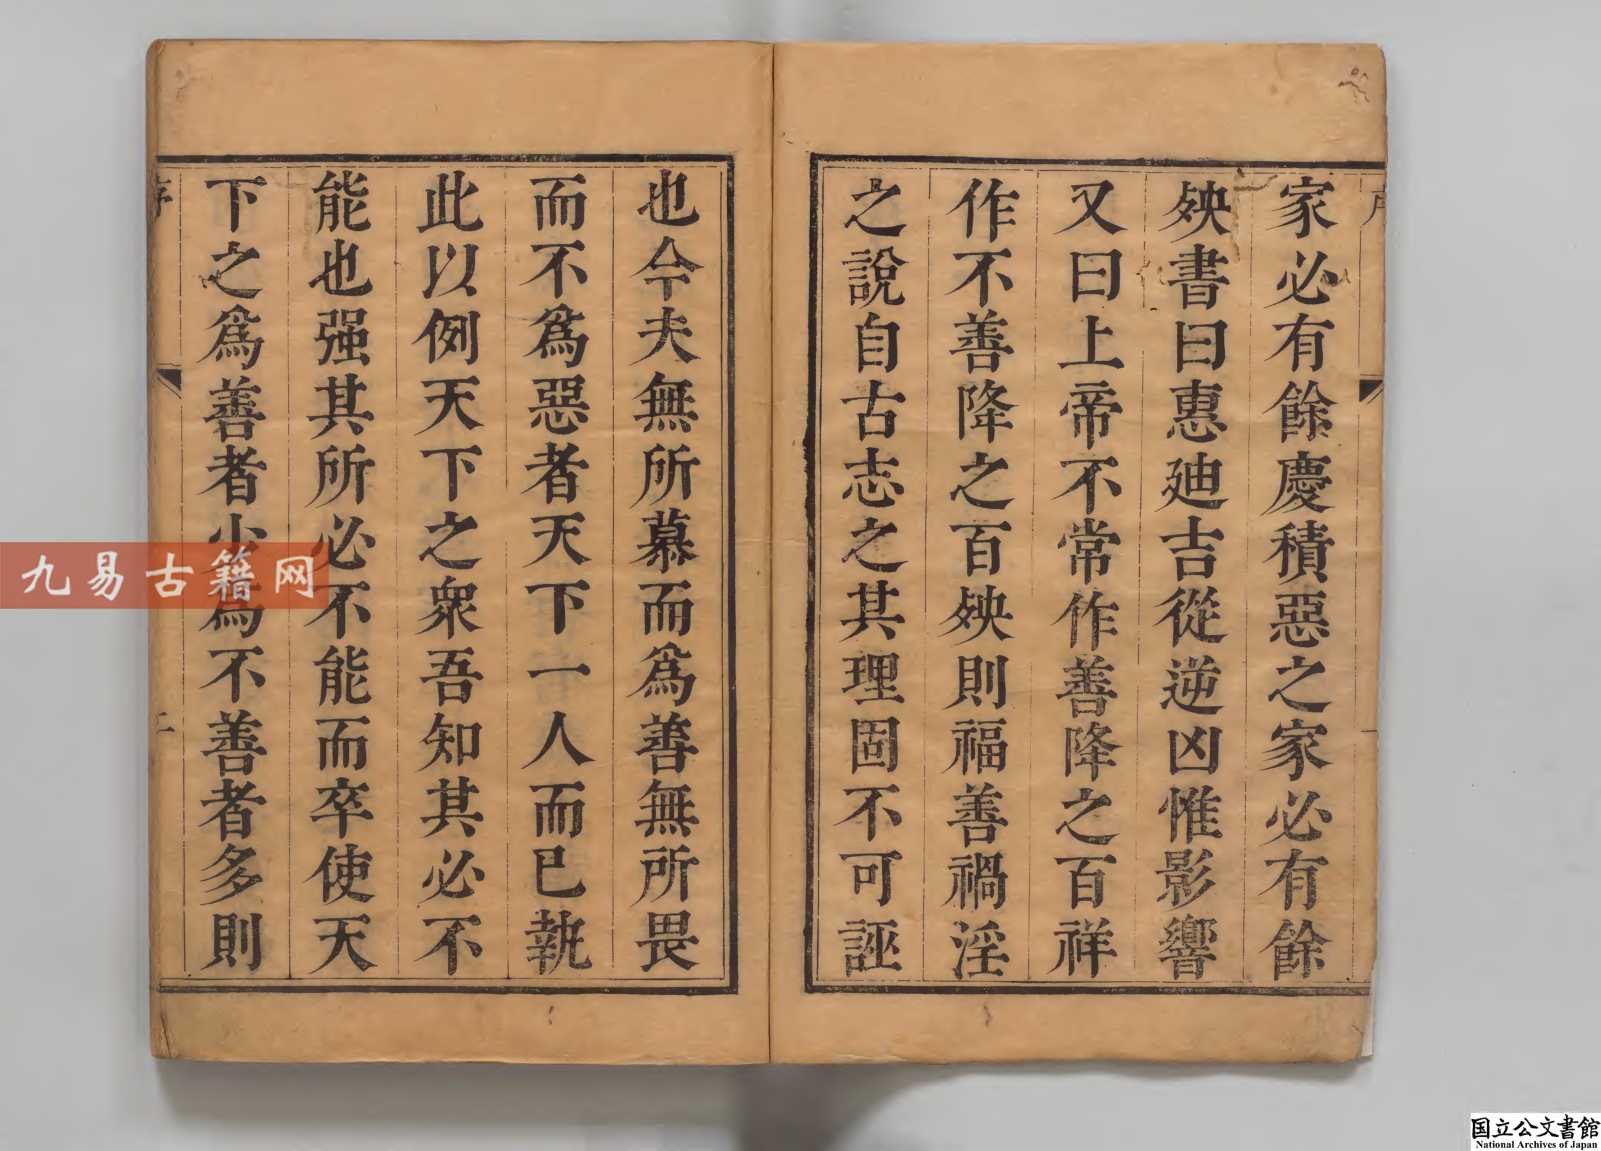 家必有餘慶積惡之家必有餘
殃書曰惠廸吉從逆凶惟影響
又曰上帝不常作善降之百祥
作不善降之百殃則福善禍淫
之說自古志之其理固不可誣
也今夫無所慕而爲善無所畏
而不爲惡者天下一人而已執
此以例天下之衆吾知其必不
能也强其所必不能而卒使天
下之爲善者少爲不善者多則
九易古籍网
国立公文書館
National Archives of Japan